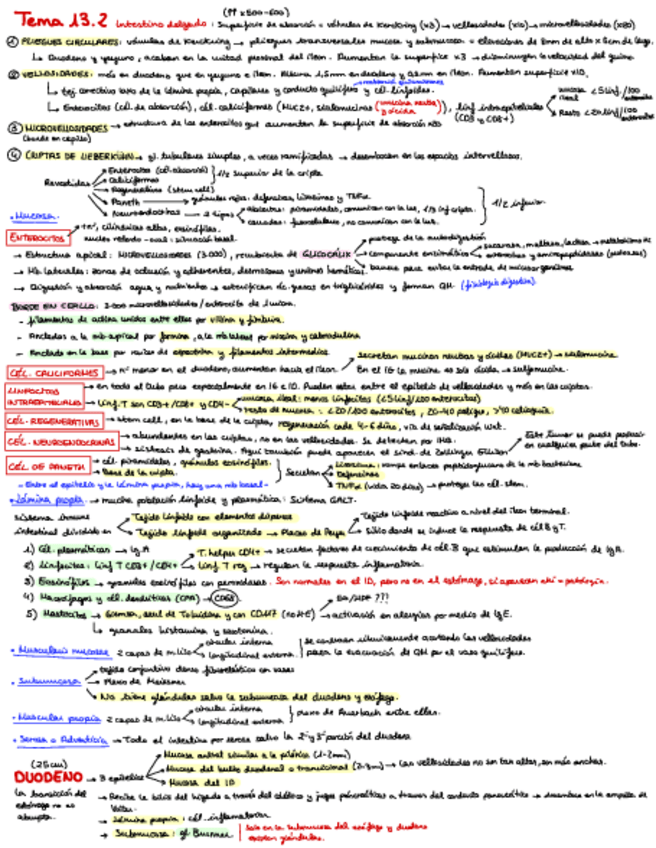 (↑↑ x500-600)
Tema 13.2 Intestino delgado: Superficie de absorción = válvulas de Kerckring (x3) → vellosidades (x10) → microvellosidades (x20)
① PLIEGUES CIRCULARES: válvulas de Kerckring → pliegues transversales mucosa y submucosa = elevaciones de 8mm de alto x 5cm de largo.
↳ Duodeno y yeyuno, acaban en la mitad proximal del íleon. Aumentan la superficie x3 → disminuyen la velocidad del quimo.
② VELLOSIDADES: más en duodeno que en yeyuno e íleon. Altura 1,5mm en duodeno y 0,2mm en íleon. Aumentan superficie x10.
↳ tej. conectivo laxo de la lámina propia, capilares y conducto quilífero y cél. linfoides.
↳ Enterocitos (cél. de absorción), cél. caliciformes (MUC2+, sialomucinas (mucina neutra y ácida)), linf intraepiteliales (CD3 y CD8+)
mucosa ileal <5 linf/100 enterocitos
Resto <20 linf/100 enterocitos
③ MICROVELLOSIDADES → estructura de los enterocitos que aumentan la superficie de absorción x20
(borde en cepillo)
④ CRIPTAS DE LIEBERKÜHN → gl. tubulares simples, a veces ramificadas → desembocan en los espacios intervellosos.
Revestidas
Enterocitos (cél. absorción)
Caliciformes
1/2 superior de la cripta.
Regenerativas (stem cell)
Paneth → gránulos rojos: defensinas, lisozimas y TNFα
Neuroendocrinas → 2 tipos
abiertas: piramidales, comunican con la luz, 1/3 inf cripta.
cerradas: fusocelulares, no comunican con la luz.
1/2 inferior.
• Mucosa.
ENTEROCITOS
→ +nº, cilíndricas altas, eosinófilas.
núcleo redondo-oval: situación basal.
→ Estructura apical: MICROVELLOSIDADES (3.000), recubierta de GLICOCÁLIX
protege de la autodigestión
componente enzimático
sacarasa, maltasa, lactasa → metabolismo HC
barrera para evitar la entrada de microorganismos
→ Mb laterales: zonas de oclusión y adherentes, desmosomas y uniones
→ Digestión y absorción agua y nutrientes → esterifican ác. grasos en triglicéridos y forman QM. (fisiología digestiva).
BORDE EN CEPILLO: 3.000 microvellosidades/enterocito de 1 micra.
- filamentos de actina unidos entre ellos por villina y fimbrina.
- Anclados a la mb apical por formina, a la mb lateral por miosina y calmodulina
- Anclado en la base por raíces de espectrina y filamentos intermedios.
CÉL. CALICIFORMES → nº menor en el duodeno, aumentan hacia el íleon.
secretan mucinas neutras y ácidas (MUC2+) → sialomucina
En el IG la mucina es solo ácida → sulfomucina.
LINFOCITOS INTRAEPITELIALES
→ en todo el tubo pero especialmente en IG e ID. Pueden estar entre el epitelio de vellosidades y más en las criptas.
→ Linf. T son CD3+/CD8+ y CD4-
mucosa ileal: menos linfocitos (<5 linf/100 enterocitos)
resto de mucosa: <20/100 enterocitos, 20-40 peligro, >40 celiaquía.
CÉL. REGENERATIVAS → stem cell, en la base de la cripta, regeneración cada 4-6 días, vía de señalización Wnt.
CÉL. NEUROENDOCRINAS
→ abundantes en las criptas, no en las vellosidades. Se detectan por IHQ.
→ síntesis de gastrina. Aquí también puede aparecer el sínd. de Zollinger Ellison
Este tumor se puede producir en cualquier parte del tubo.
CÉL. DE PANETH
→ cél. piramidales, gránulos eosinófilos.
→ Base de la cripta.
Secretan
Lisozima: rompe enlaces peptidoglucano de la mb bacteriana
Defensinas
TNFα (vida 20 días) → protege las cél. stem.
- Entre el epitelio y la lámina propia, hay una mb basal-
• Lámina propia → mucha población linfoide y plasmática: Sistema GALT.
Sistema inmune intestinal dividido en
Tejido linfoide con elementos dispersos
Tejido linfoide organizado → Placas de Peyer
Tejido linfoide reactivo a nivel del íleon terminal.
Sitio donde se induce la respuesta de cél B y T.
1) Cél. plasmáticas → IgA
2) Linfocitos: Linf T CD3+/CD4+
T. helper CD4+ → secretan factores de crecimiento de cél. B que estimulan la producción de IgA.
Linf T reg → regulan la respuesta inflamatoria.
3) Eosinófilos → gránulos eosinófilos con peroxidasas. Son normales en el ID, pero no en el estómago, si aparecen ahí = patología.
4) Macrófagos y cél. dendríticas (CPA) → CD68
5) Mastocitos → Giemsa, azul de Toluidina y con CD117 (no H-E) → activación en alergias por medio de IgE.
↳ gránulos histamina y serotonina.
• Muscularis mucosae 2 capas de m. liso
circular interna
longitudinal externa
se contraen rítmicamente acortando las vellosidades para la evacuación de QM por el vaso quilífero.
• Submucosa
tejido conjuntivo denso fibroelástico con vasos
Plexo de Meissner
No tiene glándulas salvo la submucosa del duodeno y esófago.
• Muscular propia 2 capas de m. liso
circular interna
longitudinal externa
plexo de Auerbach entre ellas.
• Serosa o Adventicia → Todo el intestino por serosa salvo la 2ª y 3ª porción del duodeno
(25cm)
DUODENO → 3 epitelios
Mucosa antral similar a la pilórica (1-2mm)
Mucosa del bulbo duodenal o transicional (2-3mm) → las vellosidades no son tan altas, son más anchas.
Mucosa del ID
La transición del estómago no es abrupta.
→ Recibe la bilis del hígado a través del colédoco y jugos pancreáticos a través del conducto pancreático → desemboca en la ampolla de Vater.
→ Lámina propia: cél. inflamatorias.
→ Submucosa: gl Brunner
Solo en la submucosa del esófago y duodeno existen glándulas.